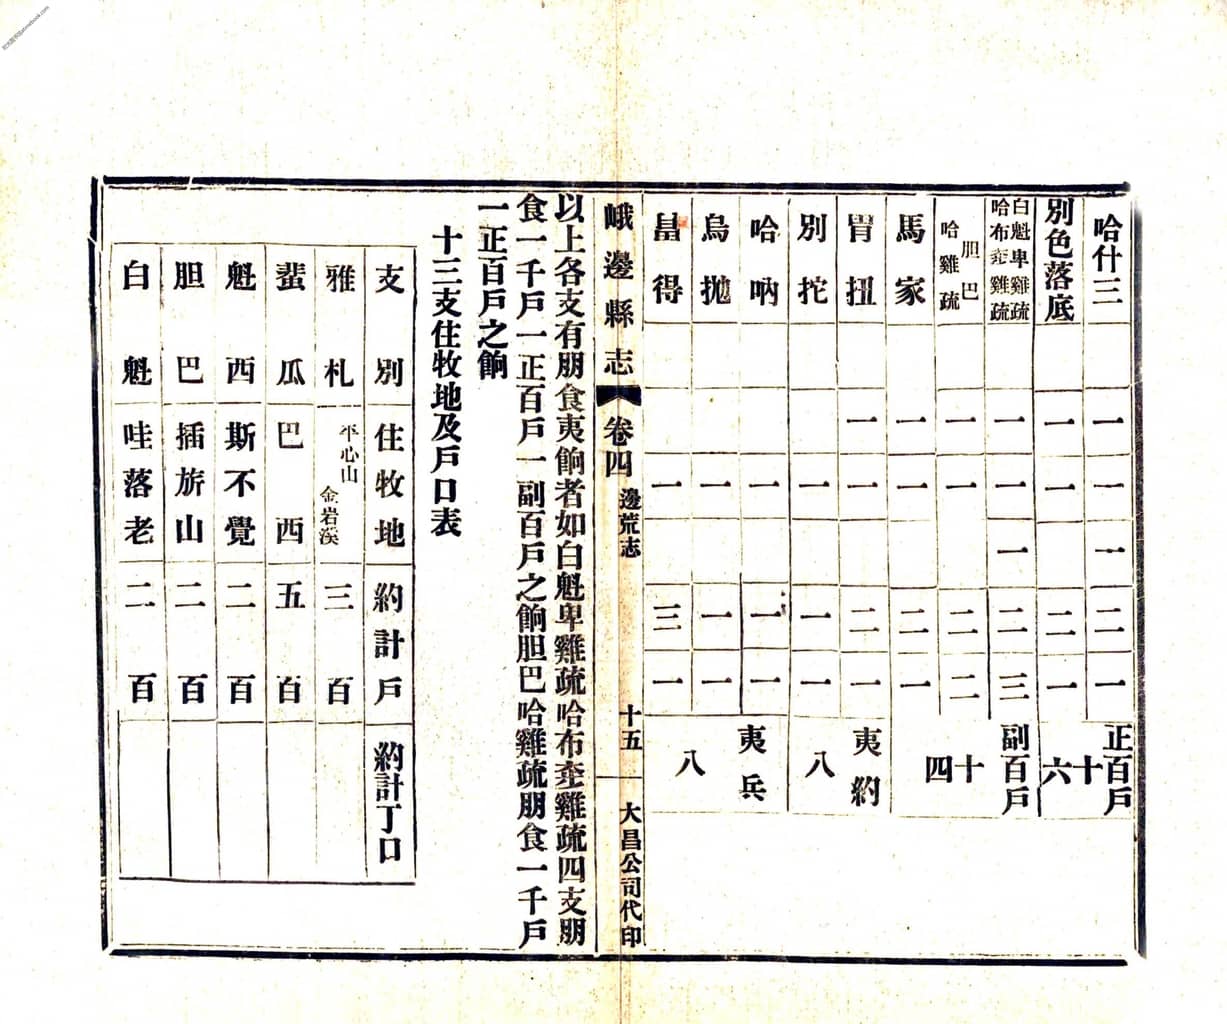 哈什三 一 一 一 二 一
別色落底 一 一 二 一
白魁卑雞疏
哈布㐂雞疏 一 一 一 二 三
胆巴
哈雞疏 一 一 二 二
馬家 一 一 二 一
胃扭 一 一 二 一
別挓 一 一 一
哈吶 一 一 一
烏拋 一 一 一
畕得 一 三 一
正百戶
十六
副百戶
十四
夷約
八
夷兵
八
峨邊縣志 卷四 邊荒志 十五 大昌公司代印
以上各支有朋食夷餉者如白魁卑雞疏哈布㐂雞疏四支朋
食一千戶一正百戶一副百戶之餉胆巴哈雞疏朋食一千戶
一正百戶之餉
十三支住牧地及戶口表
支別 住牧地 約計戶 約計丁口
雅札 平心山 金岩溪 三百
蜚瓜 巴西 五百
魁西 斯不覺 二百
胆巴 插旂山 二百
白魁 哇落老 二百